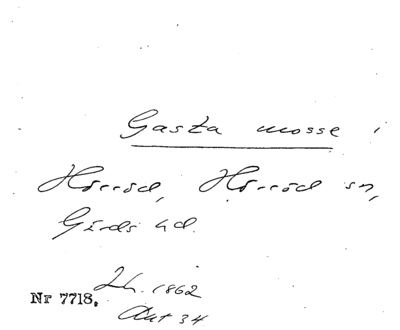 Gasta mosse i
Hörröd, Hörröd sn,
Gärds hd.
Lh. 1862
Nr 7718.
Akt 34